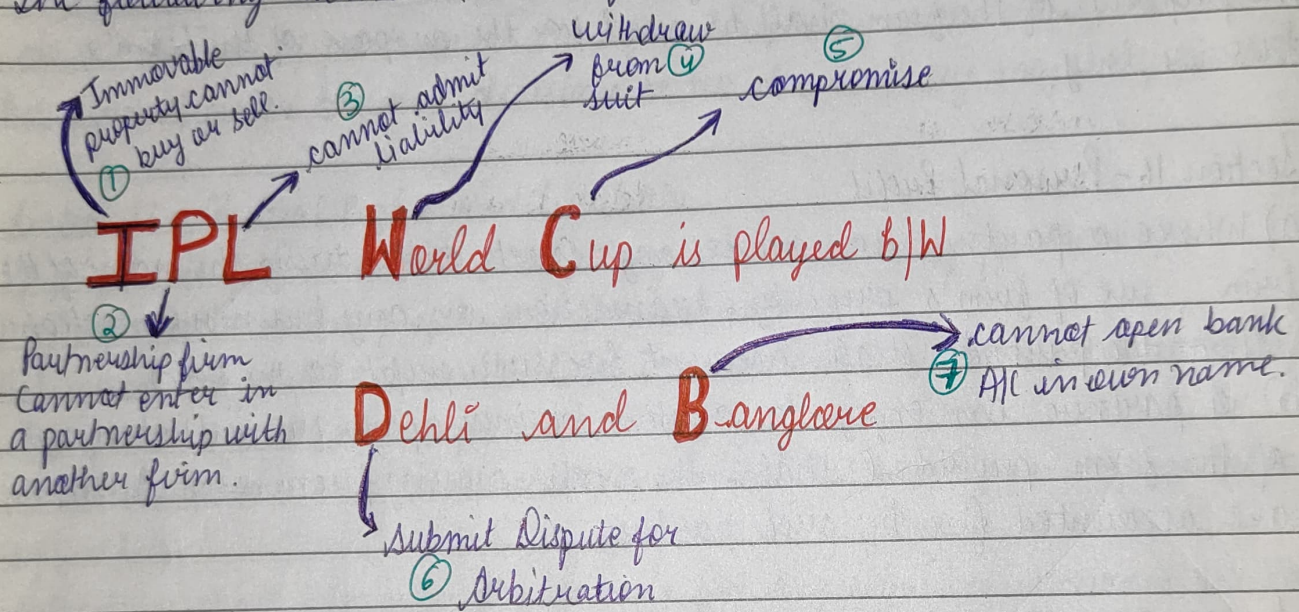 Immovable
property cannot
buy or sell.
①
③
cannot admit
liability
withdraw
from ④
suit
⑤
compromise
IPL World Cup is played b/W
②
Partnership firm
Cannot enter in
a partnership with
another firm.
Dehli and Banglore
cannot open bank
⑦ A/C in own name.
submit Dispute for
⑥ Arbitration